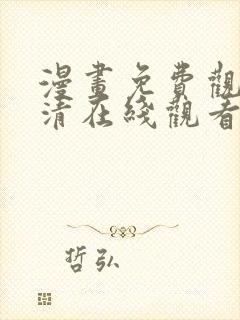 漫畫免費觀
清在綫觀看
哲弘